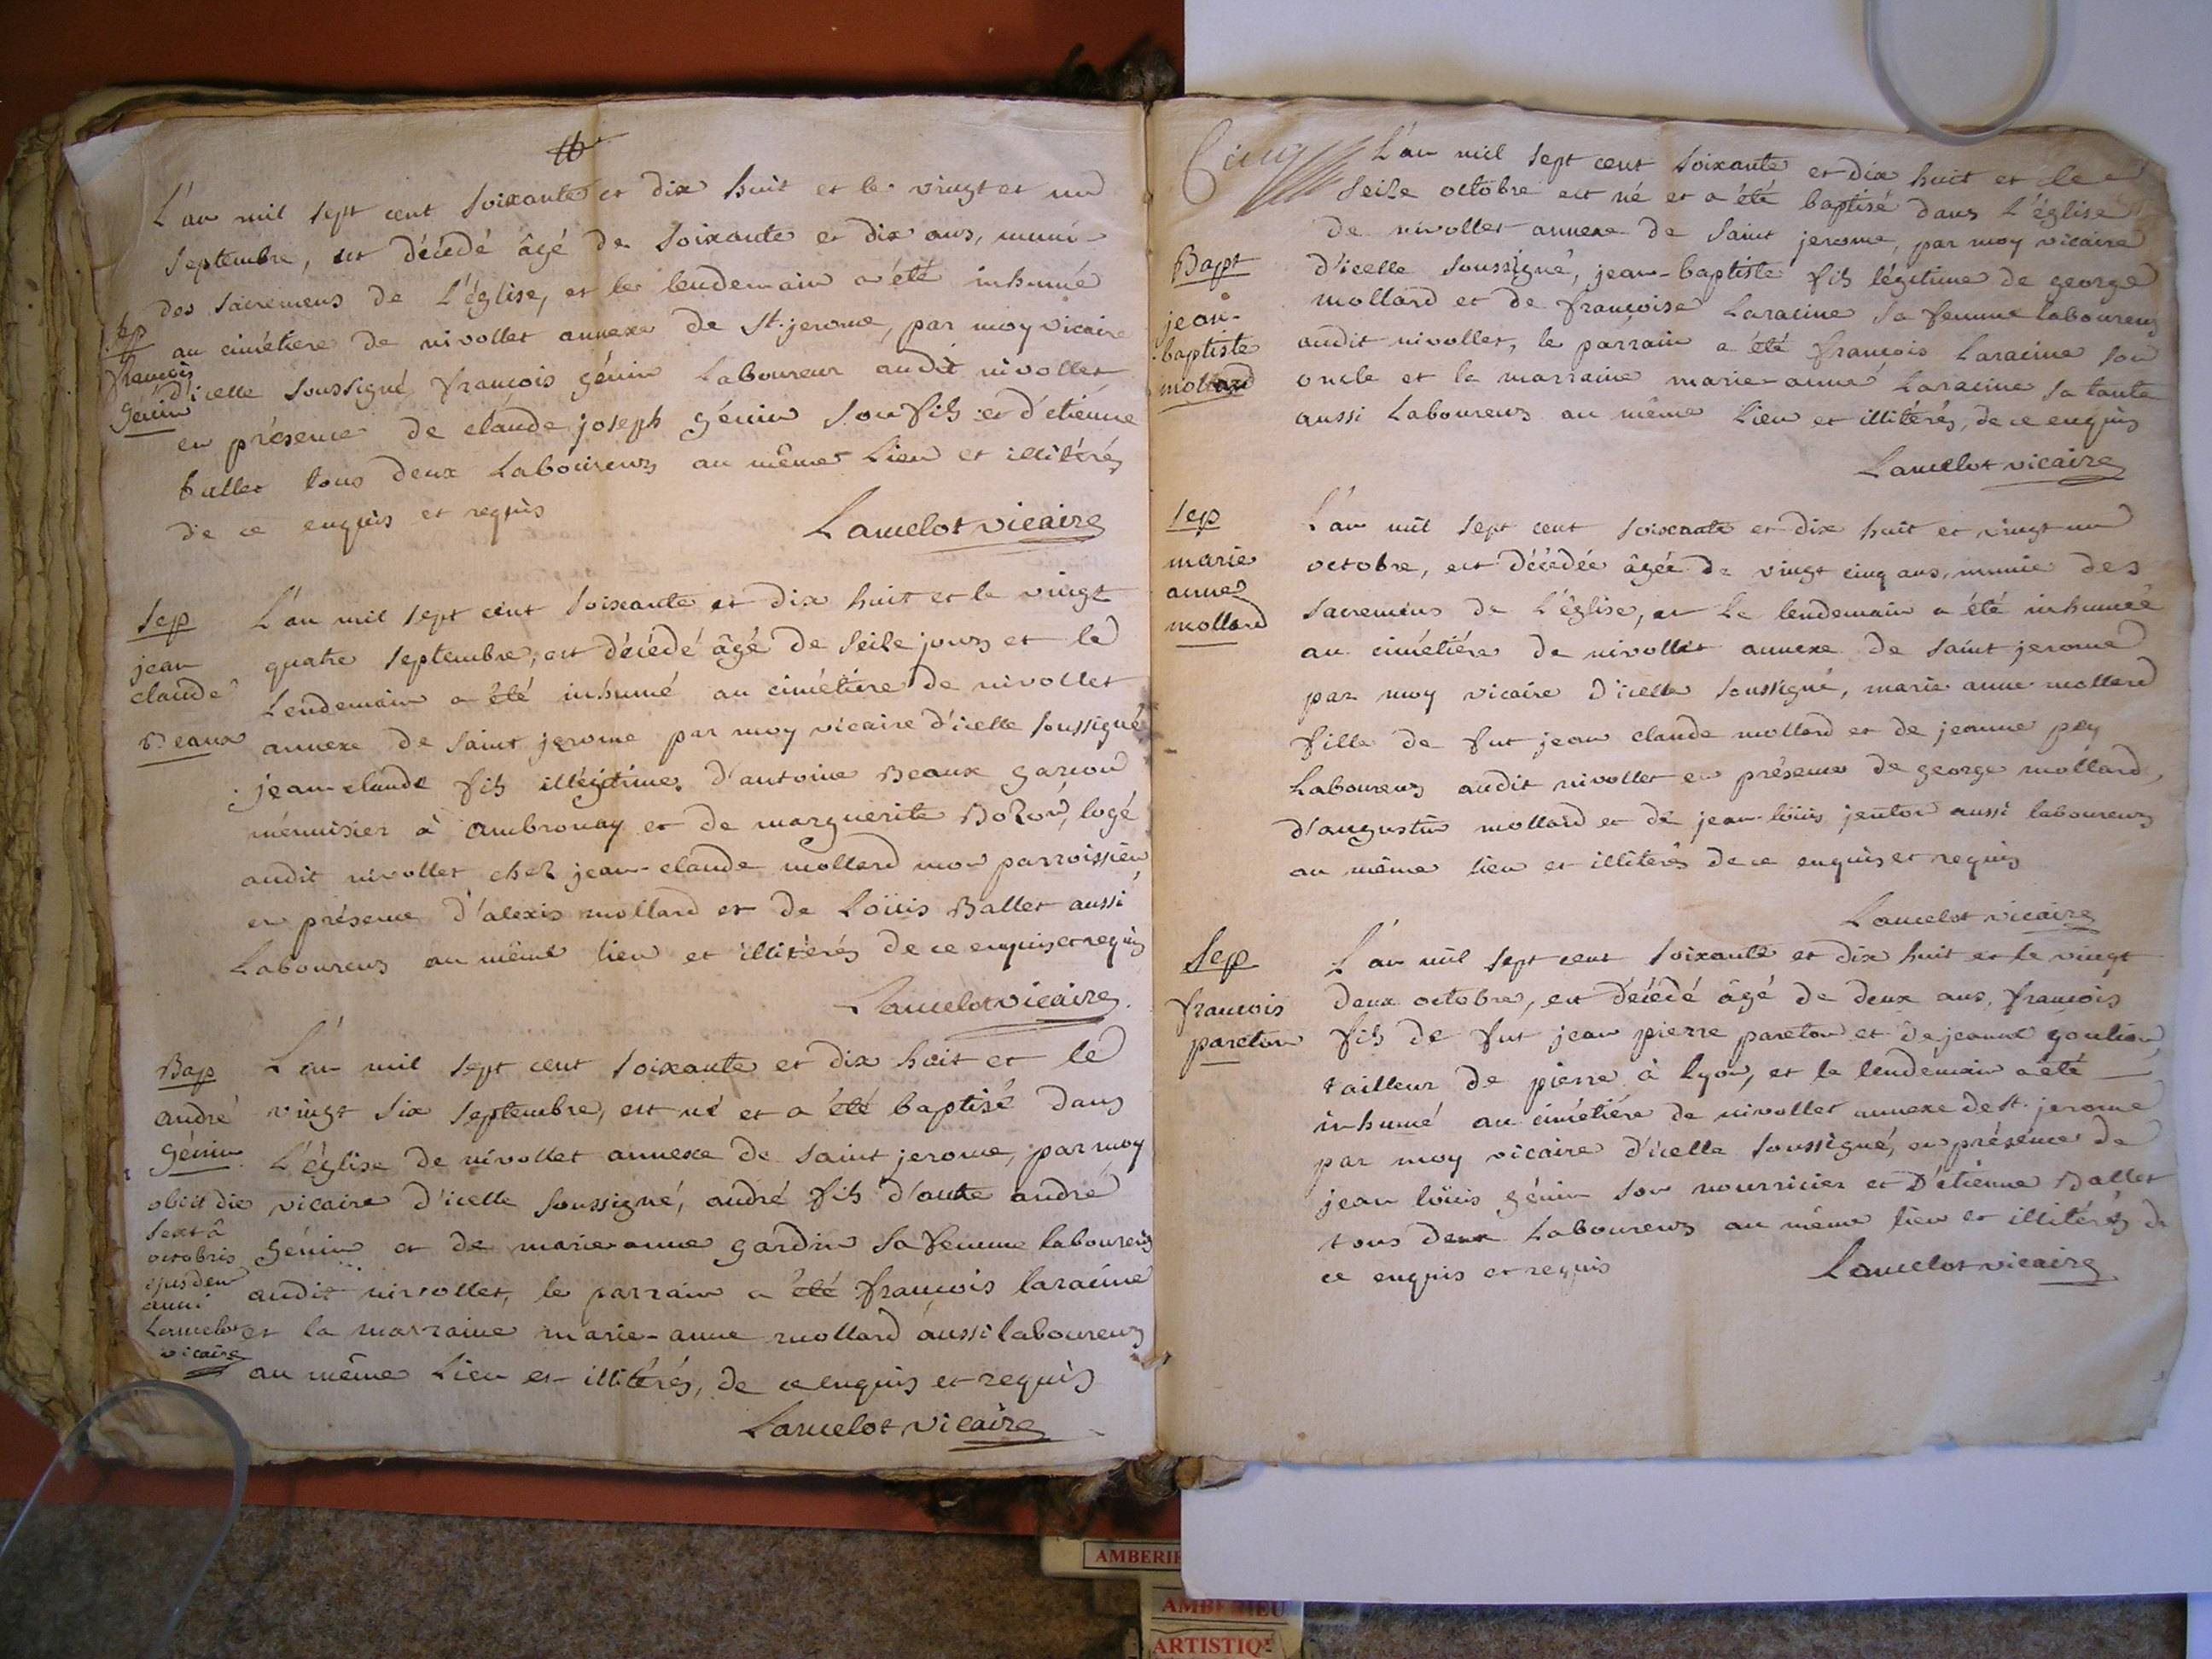 L'an mil sept cent soixante et dix huit et le vingt et un
septembre, est décédé âgé de soixante et dix ans, muni
des sacremens de l'église, et le lendemain a été inhumé
au cimétiere de nivollet annexe de St. jerome, par moy vicaire
d'icelle soussigné françois génin Laboureur audit nivollet
en présence de claude joseph génin son fils et d'etiénne
ballet tous deux Laboureurs au même Lieu et illitérés
de ce enquis et requis
Lancelot vicaire
Sep
françois
Génin
Sep
jean
claude
Beaux
L'an mil sept cent soixante et dix huit et le vingt
quatre septembre, est décédé âgé de seize jours et le
Lendemain a été inhumé au cimétiere de nivollet
annexe de saint jerome par moy vicaire d'icelle soussigné
jean-claude fils illégitime d'antoine Beaux garçon
ménuisier à ambronay et de marguerite Bozon, logé
audit nivollet chez jean-claude mollard mon parroissien
en présence d'alexis mollard et de Loüis Ballet aussi
Laboureurs au même lieu et illitérés de ce enquis et requis
Lancelot vicaire
Bap
andré
Génin
obiit die
sextâ
octobris
ejusdem
anni
Lancelot
vicaire
L'an mil sept cent soixante et dix huit et le
vingt six septembre, est né et a été baptisé dans
L'église de nivollet annexe de saint jerome, par moy
vicaire d'icelle soussigné, andré fils d'autre andré
Génin et de marie anne gardin sa femme laboureurs
audit nivollet, le parrain a été françois laracine
et la marraine marie-anne mollard aussi laboureurs
au même Lieu et illitérés, de ce enquis et requis
Lancelot vicaire
Cinq
Bapt
jean-
baptiste
mollard
L'an mil sept cent soixante et dix huit et le
seize octobre est né et a été baptisé dans l'église
de nivollet annexe de saint jerome, par moy vicaire
d'icelle soussigné, jean-baptiste fils légitime de george
mollard et de françoise Laracine sa femme laboureurs
audit nivollet, le parrain a été françois Laracine son
oncle et la marraine marie-anne Laracine sa tante
aussi Laboureurs au même Lieu et illitérés, de ce enquis
Lancelot vicaire
Sep
marie
anne
mollard
L'an mil sept cent soixante et dix huit et vingt un
octobre, est décédée âgée de vingt cinq ans, munie des
sacremens de l'église, et le lendemain a été inhumée
au cimétiére de nivollet annexe de saint jerome
par moy vicaire d'icelle soussigné, marie anne mollard
fille de fut jean claude mollard et de jeanne pey
Laboureurs audit nivollet en présence de george mollard,
d'augustin mollard et de jean-loüis jenton aussi laboureurs
au même lieu et illitérés de ce enquis et requis
Lancelot vicaire
Sep
françois
pareton
L'an mil sept cent soixante et dix huit et le vingt
deux octobre, est décédé âgé de deux ans, françois
fils de fut jean pierre pareton et de jeanne goulion
tailleur de pierre à Lyon, et le lendemain a été
inhumé au cimétiére de nivollet annexe de St. jerome
par moy vicaire d'icelle soussigné, en présence de
jean loüis génin son nourricier et d'étienne Ballet
tous deux Laboureurs au même lieu et illitérés de
ce enquis et requis
Lancelot vicaire
AMBERIE
AMBERIEU
ARTISTIQ